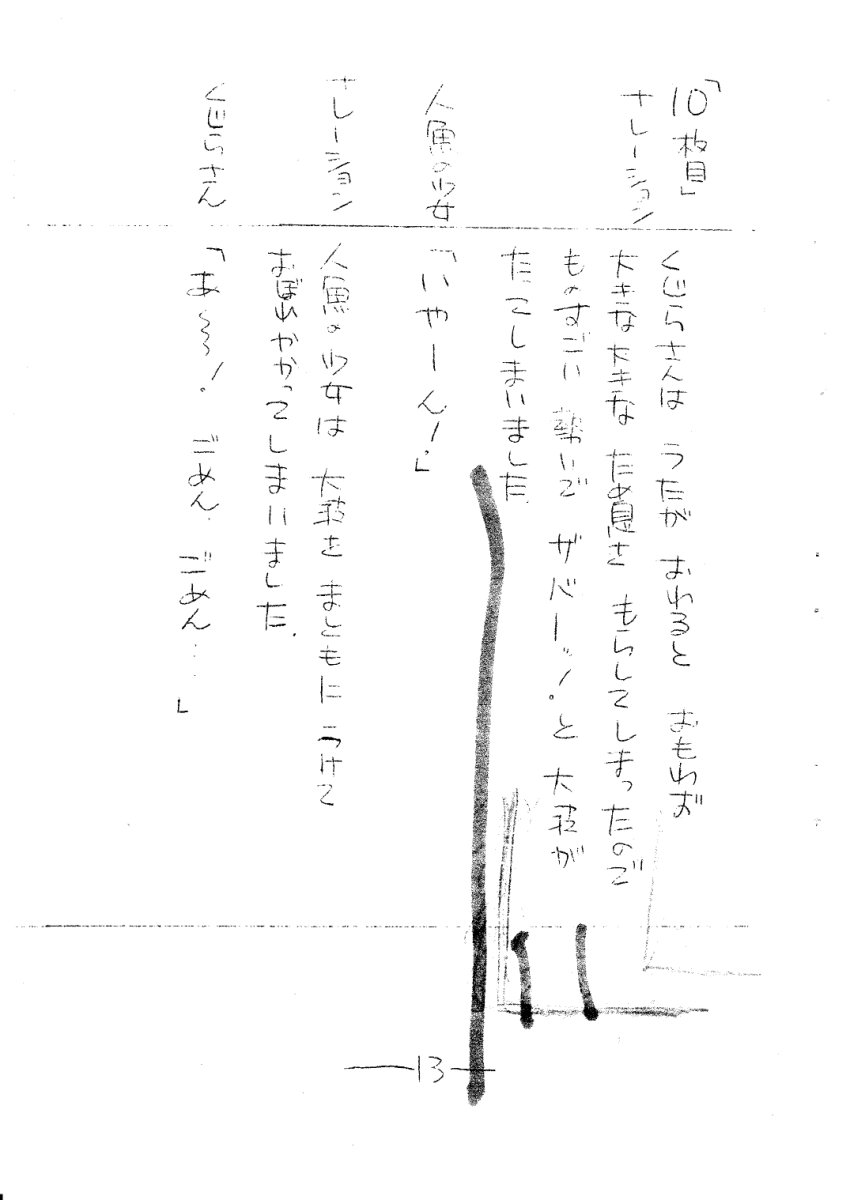 「10枚目」
ナレーション くじらさんは うたが おわると おもわず
大きな大きな ため息を もらしてしまったので
ものすごい 勢いで ザバーッ!と 大波が
たってしまいました.
人魚の少女 「いやーん!」
ナレーション 人魚の少女は 大波を まともに うけて
おぼれかかってしまいました.
くじらさん 「あ〜〜!ごめん.ごめん…」
—13—